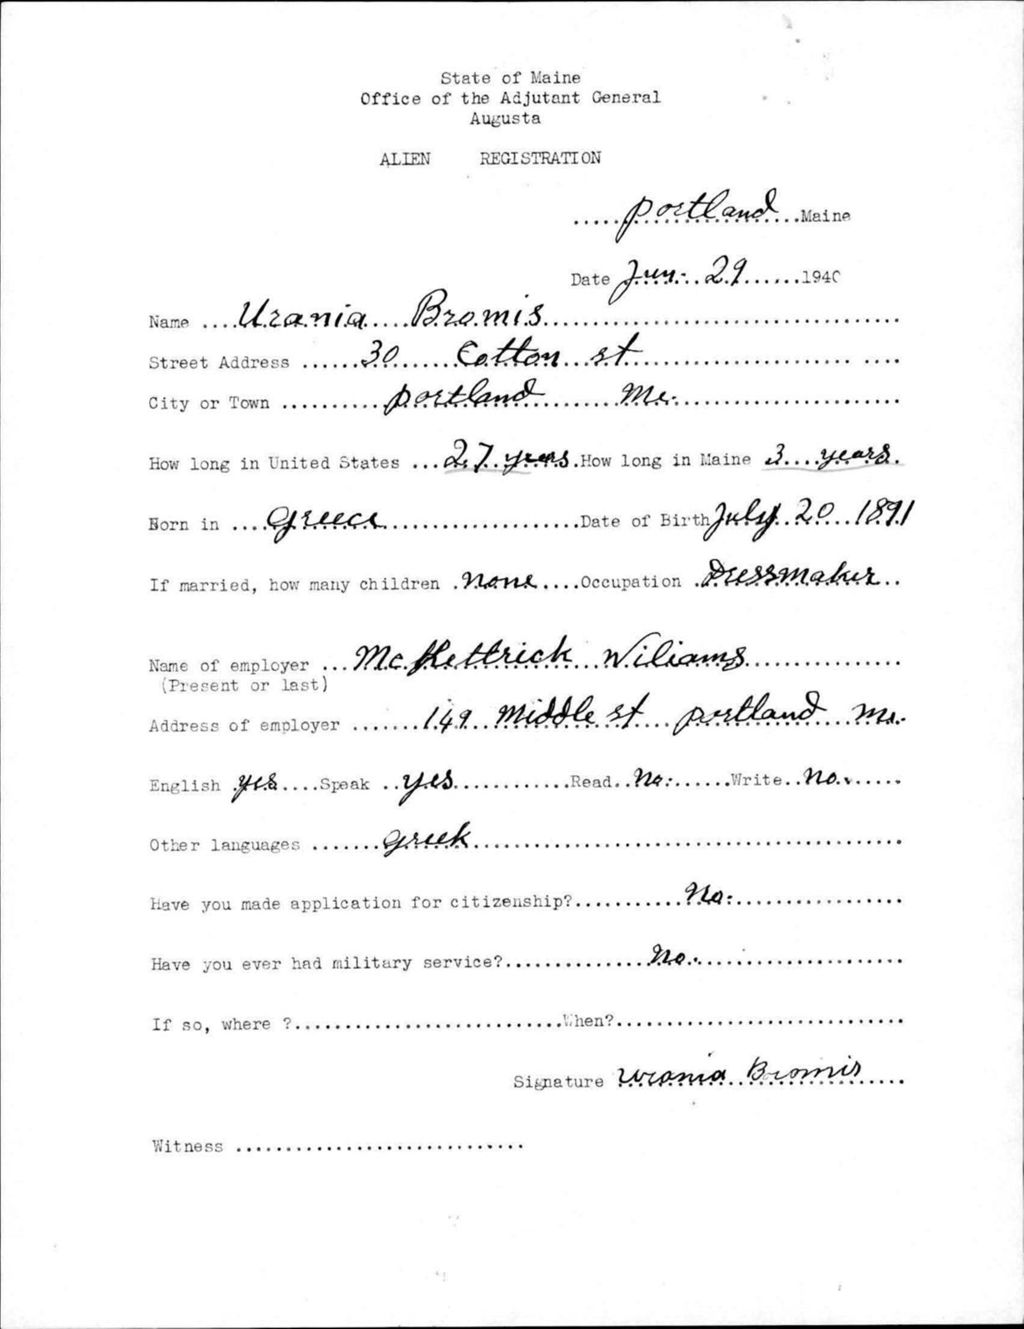 State of Maine
Office of the Adjutant General
Augusta
ALIEN REGISTRATION
.....portland...Maine
Date Jun. 29......1940
Name ....Urania....Bromis..............................
Street Address ......30......Cotton..st.................. ....
City or Town ..........portland........Me...........................
How long in United States ...27 years.How long in Maine 3....years.
Born in ....Greece.......................Date of Birth July 20...1891
If married, how many children .none....Occupation .Dressmaker..
Name of employer ...McKettrick..Wiliams..................
(Present or last)
Address of employer .......149..Middle st...portland...Me.
English yes....Speak ..yes.............Read..No.......Write..No......
Other languages .......greek..........................................
Have you made application for citizenship?...........No...................
Have you ever had military service?...............No.......................
If so, where ?..........................When?............................
Signature Urania..Bromis.....
Witness ............................